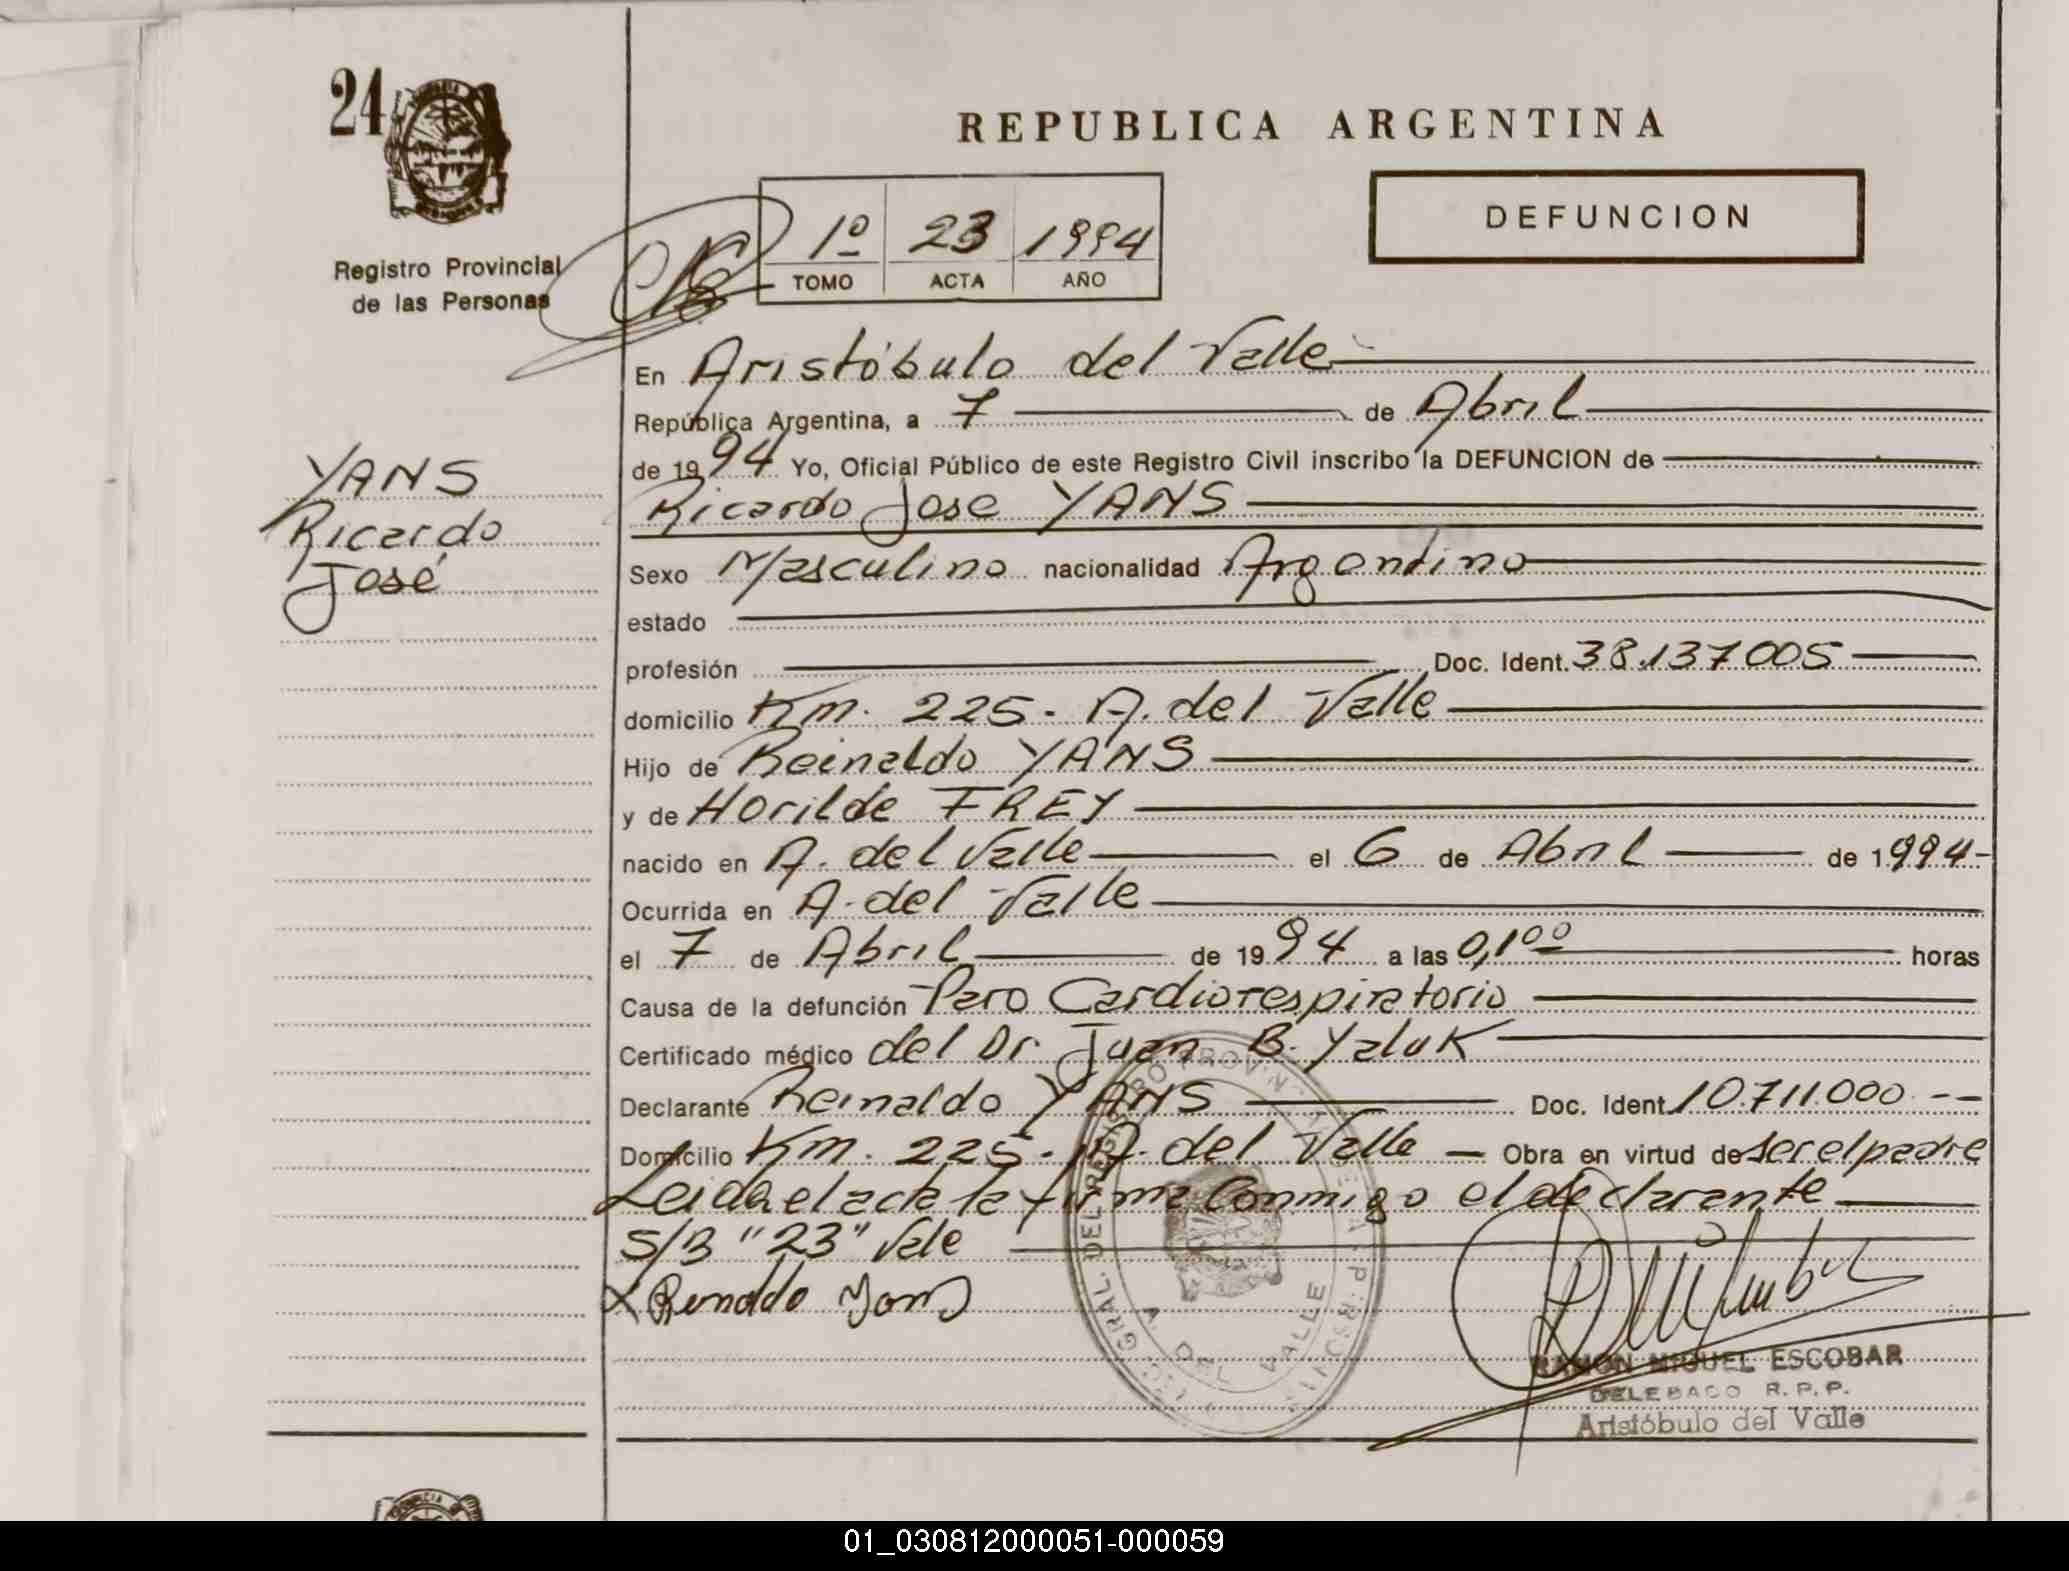 24
REPUBLICA ARGENTINA
DEFUNCION
1º 23 1994
TOMO ACTA AÑO
Registro Provincial
de las Personas
En Aristóbulo del Valle
República Argentina, a 7 de Abril
de 1994 Yo, Oficial Público de este Registro Civil inscribo la DEFUNCION de
YANS
Ricardo
José
Ricardo Jose YANS
Sexo Masculino nacionalidad Argentino
estado
profesión Doc. Ident. 38.137005
domicilio Km. 225. A. del Valle
Hijo de Reinaldo YANS
y de Horilde FREY
nacido en A. del Valle el 6 de Abril de 1994-
Ocurrida en A. del Valle
el 7 de Abril de 1994 a las 0,1⁰⁰ horas
Causa de la defunción Paro Cardiorespiratorio
Certificado médico del Dr. Juan B. Yaluk
Declarante Reinaldo YANS Doc. Ident. 10.711.000 --
Domicilio Km. 225. A. del Valle — Obra en virtud de ser el padre
Leida el acta la firma Conmigo el declarante
S/B "23" Vale
X Renaldo Yans
A. DEL VALLE
RAMON MIGUEL ESCOBAR
DELEGADO R.P.P.
Aristóbulo del Valle
01_030812000051-000059